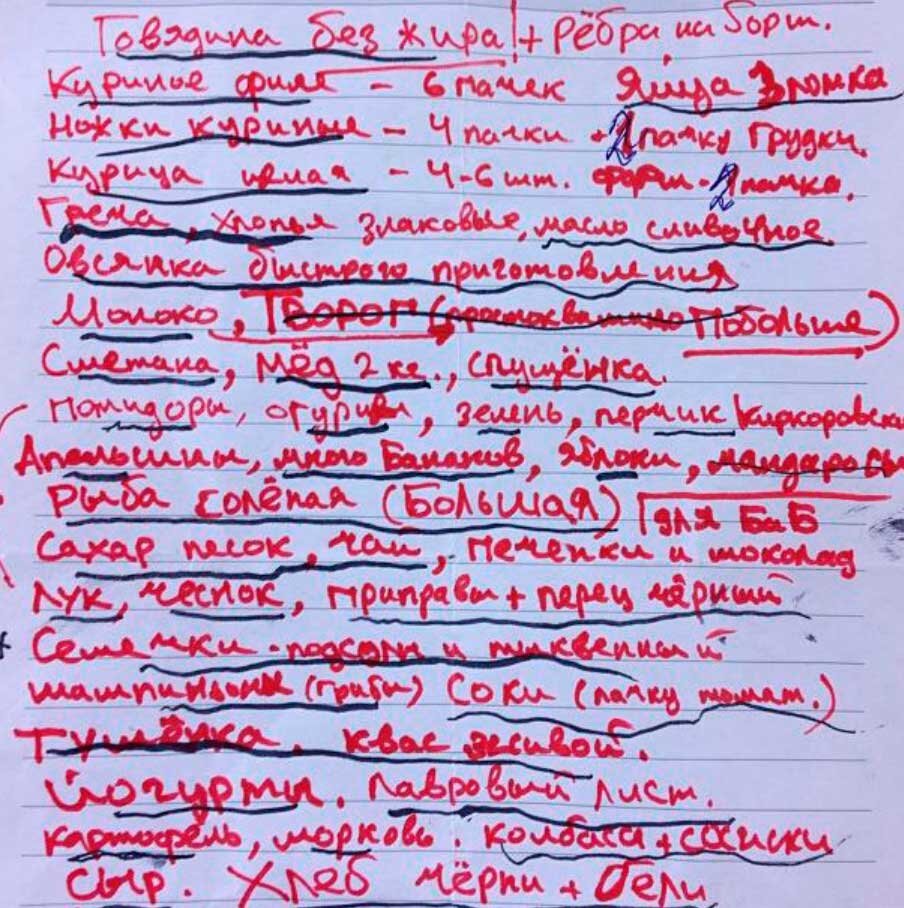 Говядина без жира! + Рёбра на борщ.
Куриное филе - 6 пачек Яйца 3 лотка
Ножки куриные - 4 пачки + 2 пачку грудки.
Курица целая - 4-6 шт. фарш - 2 пачка.
Греча, хлопья злаковые, масло сливочное.
Овсянка быстрого приготовления
Молоко, Творог (простоквашино Побольше)
Сметана, Мёд 2 кг., сгущёнка.
Помидоры, огурцы, зелень, перчик
Апельсины, много Бананов, яблоки, мандарины
Рыба солёная (Большая) для БиБ
Сахар песок, чай, печеньки и шоколад
Лук, чеснок, приправы + перец чёрный
Семечки - подсолн и тыквенный
шампиньоны (грибы) Соки (пачку томат.)
Тушёнка, квас живой.
Йогурты. Лавровый лист.
картофель, морковь. колбаса + сосиски
Сыр. Хлеб чёрны + бели